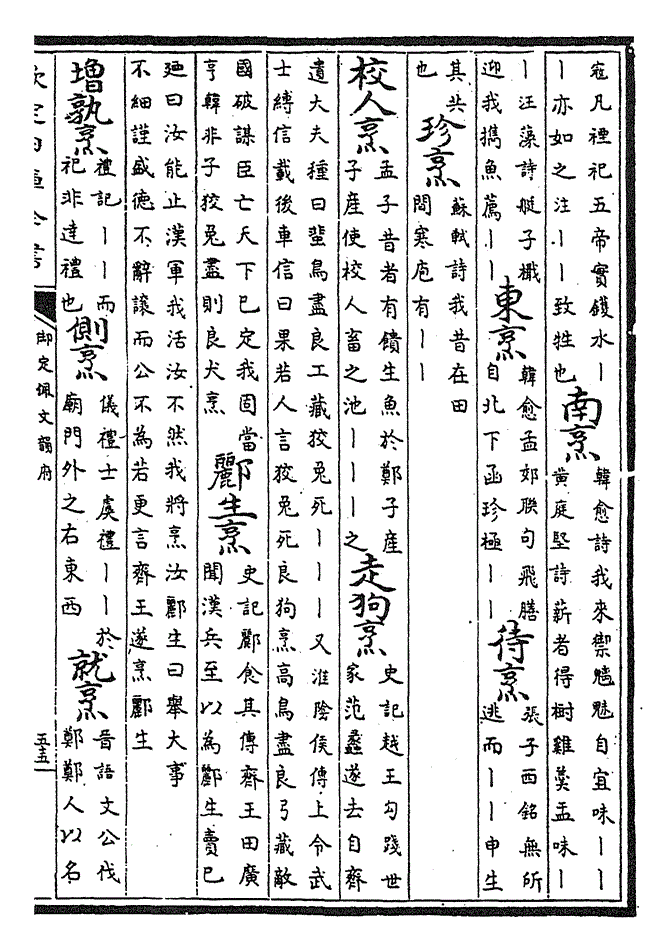 寇凡禋祀五帝實鑊水丨
丨亦如之注丨丨致牲也
南烹
韓愈詩我來禦魑魅自宜味丨丨
黄庭堅詩薪者得樹雞羹盂味丨
丨汪藻詩艇子檥
迎我擕魚薦丨丨
東烹
韓愈孟郊聨句飛膳
自北下函珍極丨丨
待烹
張子西銘無所
逃而丨丨申生
其共
也
珍烹
蘇軾詩我昔在田
間寒庖有丨丨
校人烹
孟子昔者有饋生魚於鄭子産
子産使校人畜之池丨丨丨之
走狗烹
史記越王勾踐世
家范蠡遂去自齊
遺大夫種曰蜚鳥盡良工藏狡兎死丨丨丨又淮陰侯傳上令武
士縛信載後車信曰果若人言狡兎死良狗烹高鳥盡良弓藏敵
國破謀臣亡天下已定我固當
亨韓非子狡兎盡則良犬烹
酈生烹
史記酈食其傳齊王田廣
聞漢兵至以為酈生賣已
廼曰汝能止漢軍我活汝不然我將烹汝酈生曰舉大事
不細謹盛德不辭讓而公不為若更言齊王遂烹酈生
増孰烹
禮記丨丨而
祀非達禮也
側烹
儀禮士虞禮丨丨於
廟門外之右東西
就烹
晉語文公伐
鄭鄭人以名
欽定四庫全書
御定佩文韻府
五五